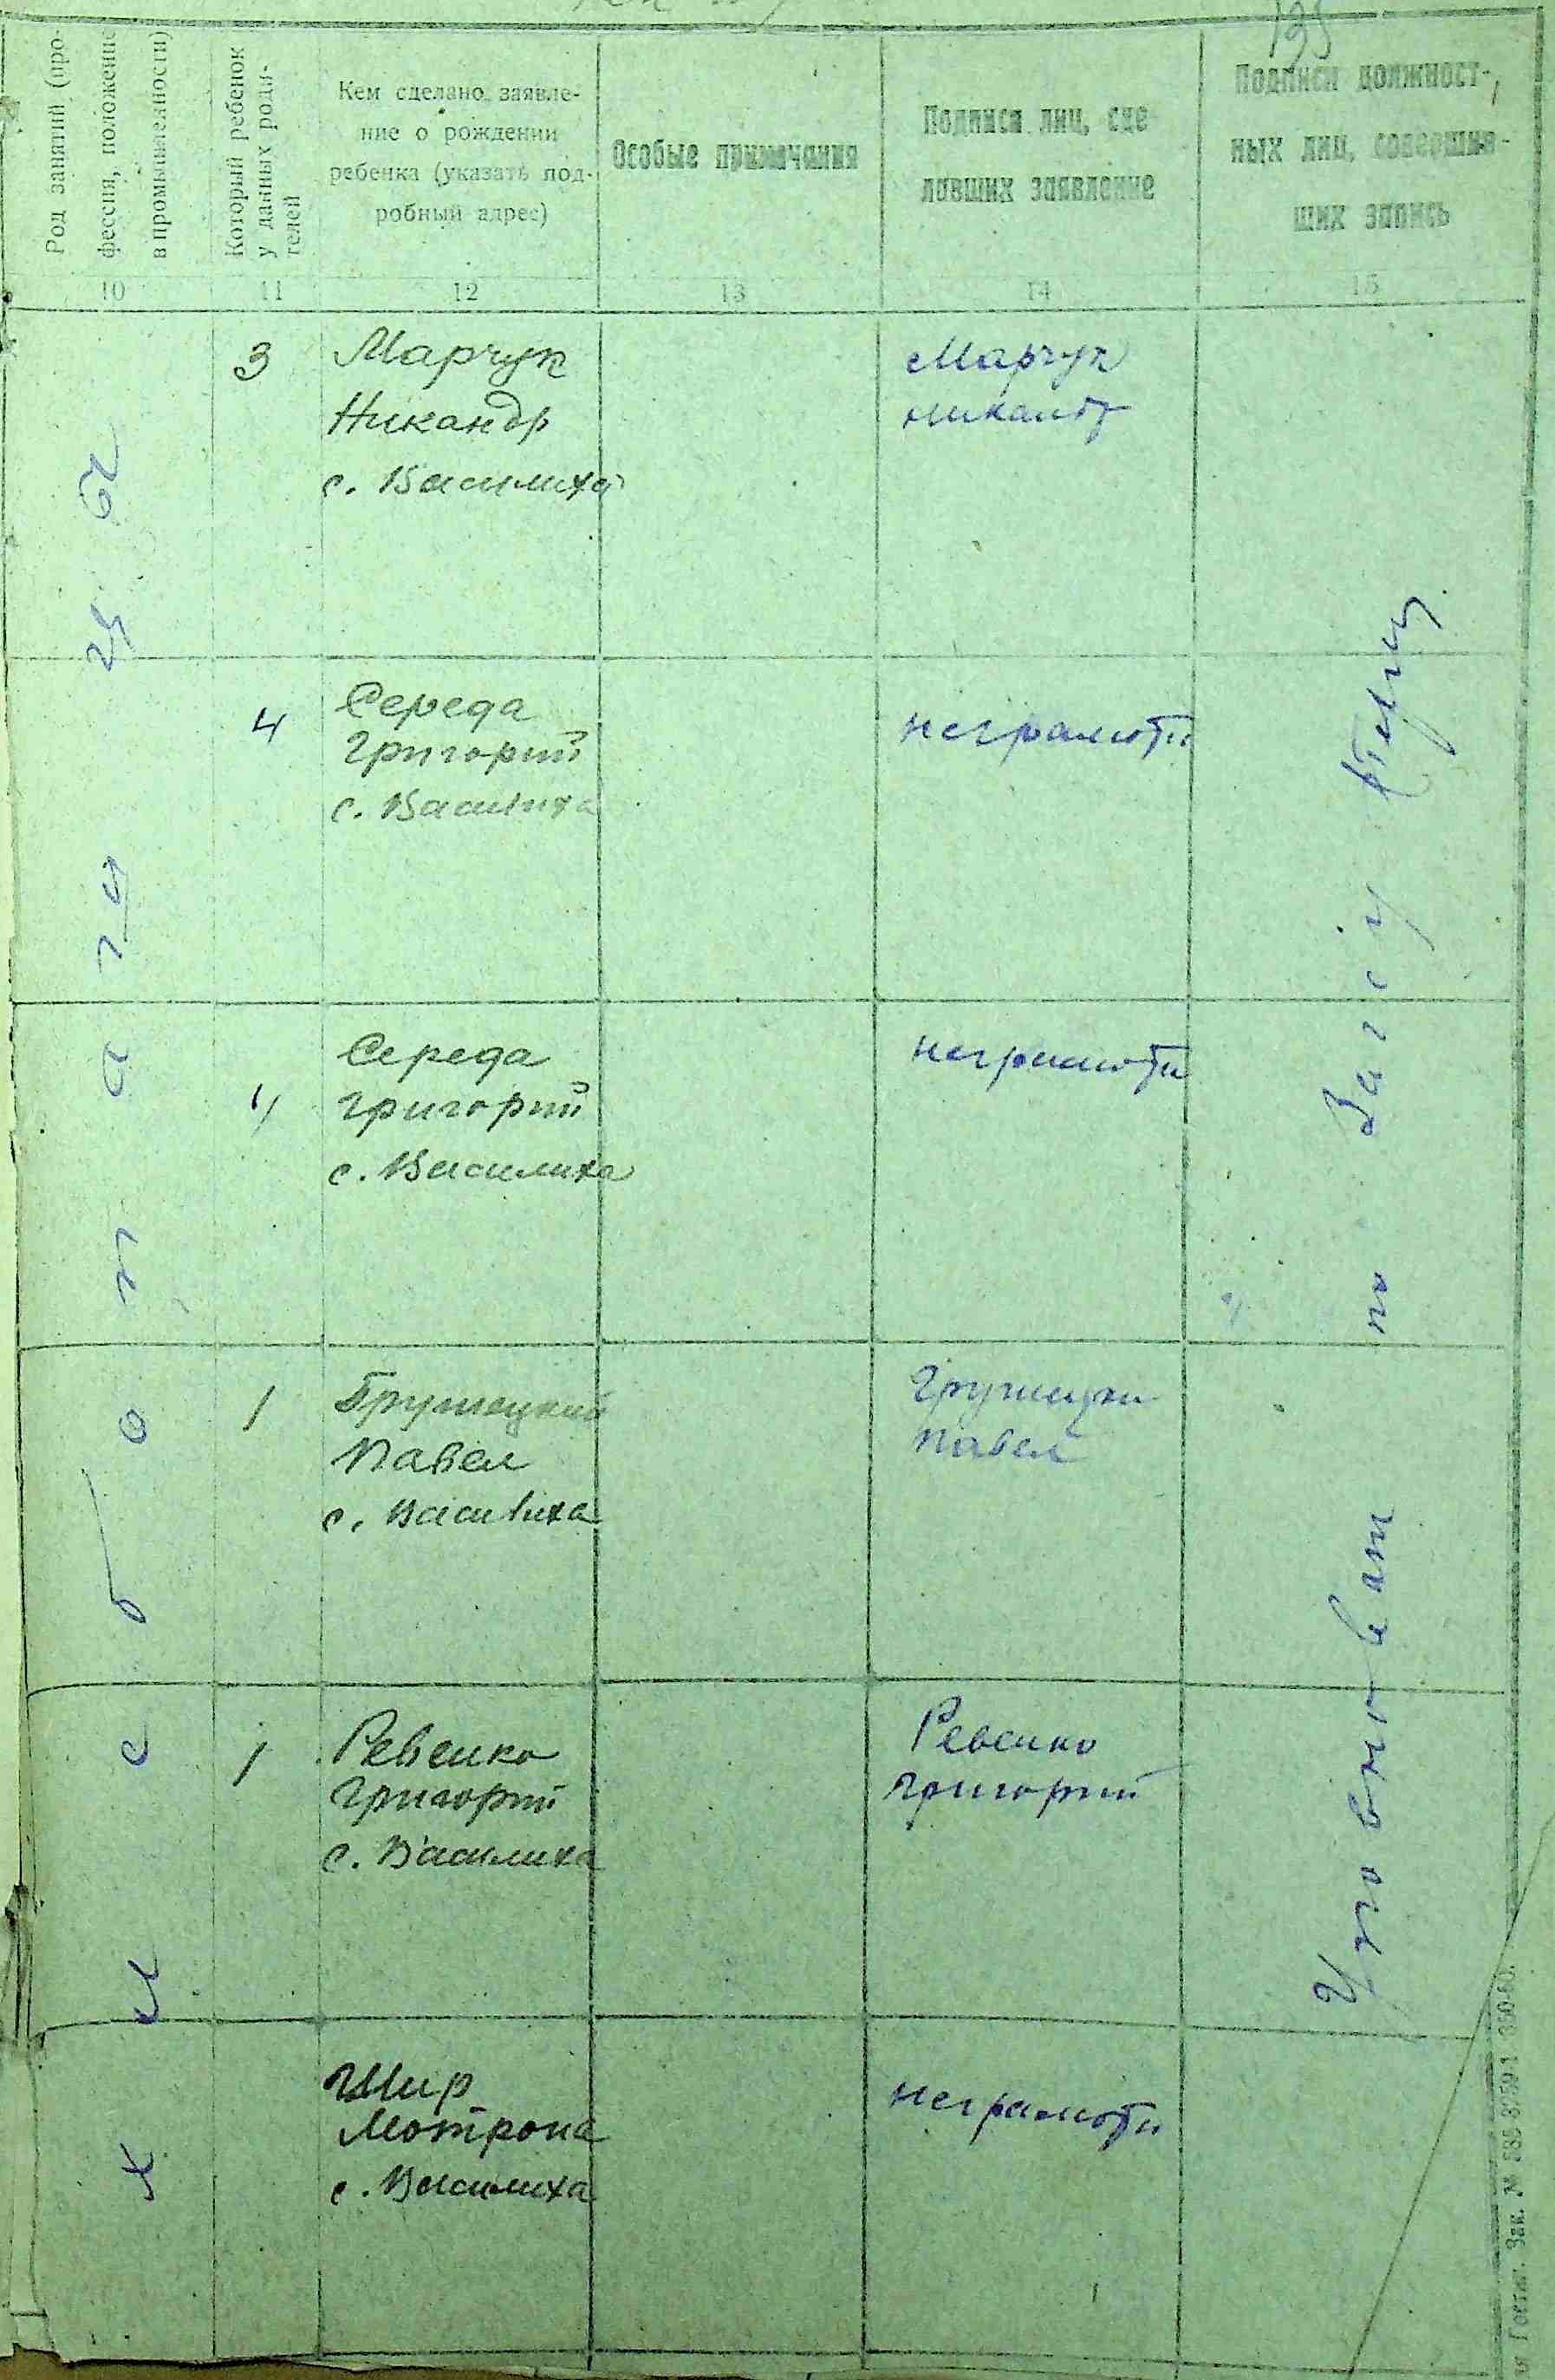 195
Род занятий (про-
фессия, положение
в промышленности)
Который ребенок
у данных роди-
телей
Кем сделано заявле-
ние о рождении
ребенка (указать под-
робный адрес)
Особые примечания
Подписи лиц, сде
лавших заявление
Подписи должност-
ных лиц, совершив-
ших запись
10
11
12
13
14
15
хлебопашцы
3
Марчук
Никандр
с. Василиха
Марчук
Никандр
4
Середа
Григорий
с. Василиха
неграмотн
4
Середа
Григорий
с. Василиха
неграмотн
1
Грушецкий
Павел
с. Василиха
Грушецки
Павел
1
Ревенко
Григорий
с. Василиха
Ревенко
Григорий
Шир
Мотрона
с. Василиха
неграмотн
Уповноват по Загсу
Зак. №